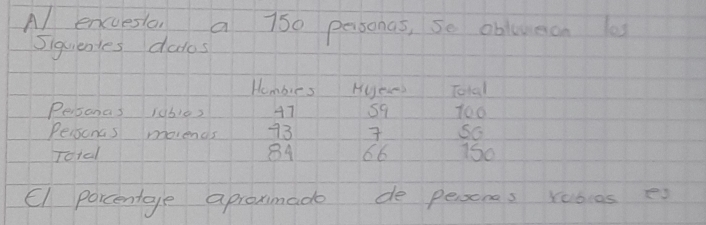 Al encuestar a 150 personas, se obtuvieron los
siguientes datos
Hombres Mujeres Total
Personas rubias 41 59 100
Personas morenas 43 7 50
Total 84 66 150
El porcentaje aproximado de personas rubias es